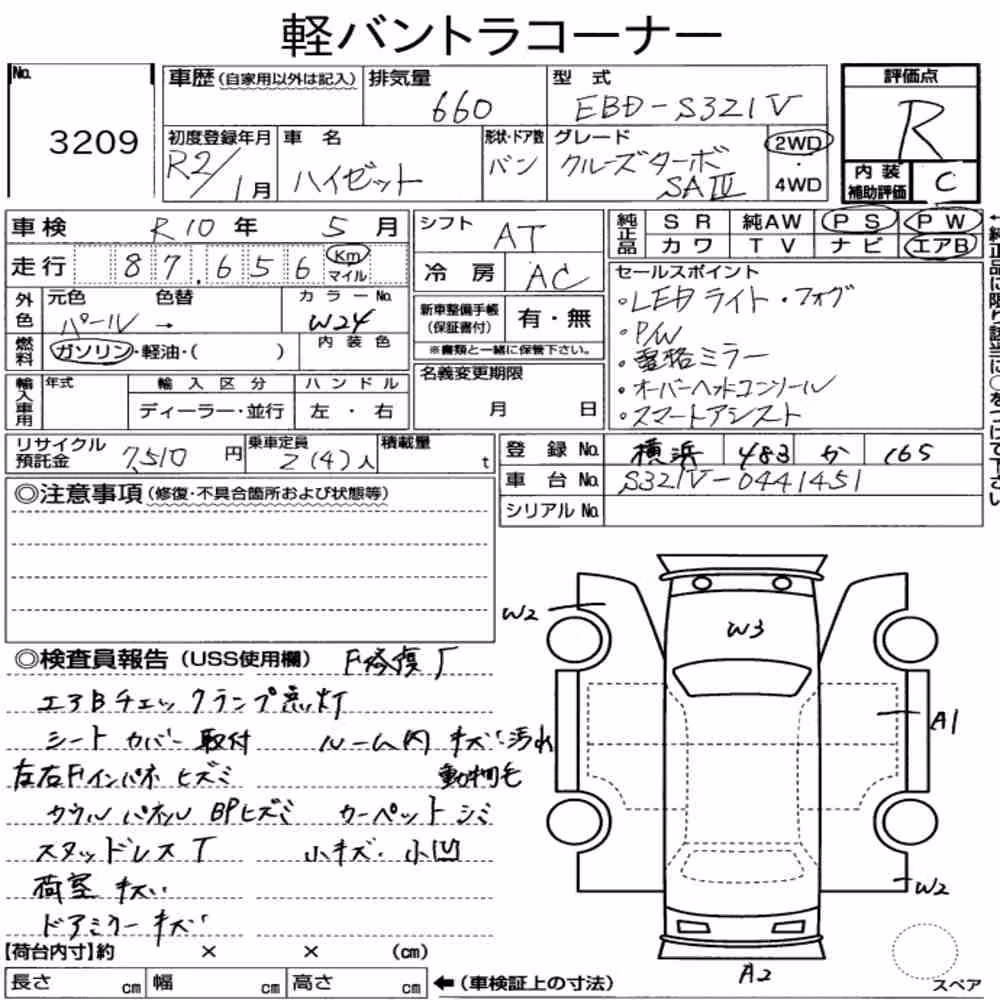 軽バントラコーナー
No. 3209
車歴(自家用以外は記入) 排気量 660 型式 EBD-S321V 評価点 R
初度登録年月 R2/1月 車名 ハイゼット 形状・ドア数 バン グレード クルーズターボ SAⅢ 2WD・4WD 内装補助評価 C
車検 R10年 5月 シフト AT 純正品 SR 純AW PS PW
カワ TV ナビ エアB
走行 87,656 Km マイル 冷房 AC
外色 元色 色替 カラーNo.
パール → W24 内装色
新車整備手帳(保証書付) 有・無
※書類と一緒に保管下さい。
燃料 ガソリン・軽油・( )
セールスポイント
・LEDライト・フォグ
・P/W
・電格ミラー
・オーバーヘッドコンソール
・スマートアシスト
輸入車用 年式 輸入区分 ハンドル
ディーラー・並行 左・右
名義変更期限 月 日
リサイクル預託金 7,510円 乗車定員 2(4)人 積載量 t
登録No. 横浜 483 か 165
車台No. S321V-0441451
シリアルNo.
◎注意事項(修復・不具合箇所および状態等)
◎検査員報告(USS使用欄) F修復了
エアBチェックランプ悪灯
シートカバー取付 ルーム内キズ汚れ
左右Fインパネヒズミ 動物毛
カウルパネルBPヒズミ カーペットシミ
スタッドレスT 小キズ・小凹
荷室キズ
ドアミラーキズ
【荷台内寸】約 × × (cm)
長さ cm 幅 cm 高さ cm ←(車検証上の寸法)
W2
W3
A1
W2
A2
スペア